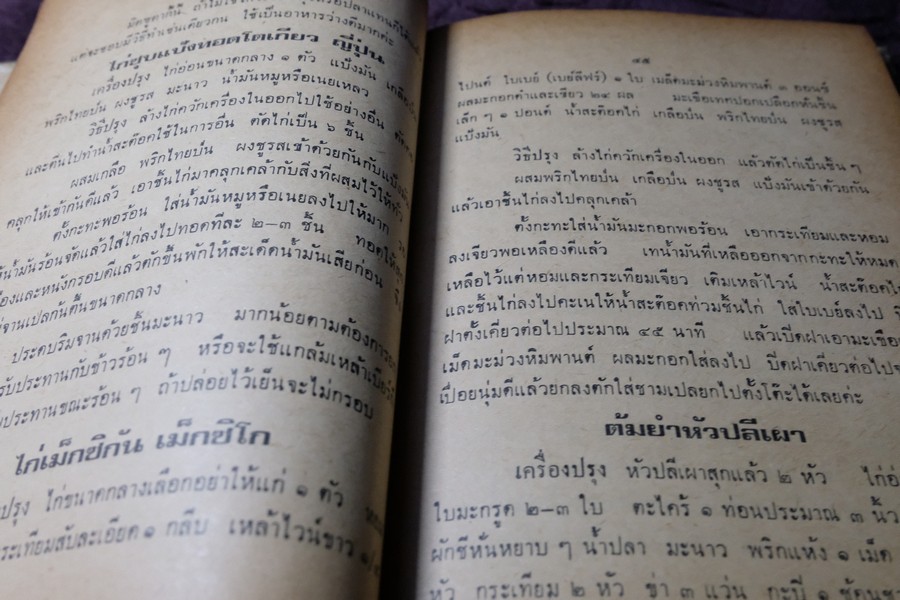 มัดชูดากินี้ ถ้าไม่ใช้
แต่จะชอบมีวิธีทำเช่นเดียวกัน ใช้เป็นอาหารว่างดีมากค่ะ
ไก่ชุบแป้งทอดโตเกียว ญี่ปุ่น
เครื่องปรุง ไก่อ่อนขนาดกลาง ๑ ตัว แป้งมัน เกลือป่น
พริกไทยป่น ผงชูรส มะนาว น้ำมันหมูหรือเนยเหลว
วิธีปรุง ล้างไก่ควักเครื่องในออกไปใช้อย่างอื่น ตัด
และตีนไปทำน้ำสะต๊อคใช้ในการอื่น ตัดไก่เป็น ๖ ชิ้น
ผสมเกลือ พริกไทยป่น ผงชูรสเข้าด้วยกันกับแป้งมัน
คลุกให้เข้ากันดีแล้ว เอาชิ้นไก่มาคลุกเคล้ากับสิ่งที่ผสมไว้ให้ทั่ว
ตั้งกะทะพอร้อน ใส่น้ำมันหมูหรือเนยลงไปให้มาก
น้ำมันร้อนจัดแล้วใส่ไก่ลงไปทอดทีละ ๒-๓ ชิ้น ทอดให้
และหนังกรอบดีแล้วตักขึ้นพักให้สะเด็ดน้ำมันเสียก่อน จึง
จานเปลก้นตื้นขนาดกลาง
ประดบริมจานด้วยชิ้นมะนาว มากน้อยตามต้องการ
รับประทานกับข้าวร้อน ๆ หรือจะใช้แกล้มเหล้าเบียร์
ประทานขณะร้อน ๆ ถ้าปล่อยไว้เย็นจะไม่กรอบ
ไก่เม็กซิกัน เม็กซิโก
ปรุง ไก่ขนาดกลางเลือกอย่าให้แก่ ๑ ตัว
กระเทียมสับละเอียด ๑ กลีบ เหล้าไวน์ขาว ๑/
๔๕
ไปนต์ ใบเบย์ (เบย์ลีฟร์) ๑ ใบ เมล็ดมะม่วงหิมพานต์ ๓ ออนซ์
ผลมะกอกดำและเขียว ๒๔ ผล มะเขือเทศปอกเปลือกหั่นชิ้น
เล็ก ๆ ๑ ปอนด์ น้ำสะต๊อคไก่ เกลือป่น พริกไทยป่น ผงชูรส
แป้งมัน
วิธีปรุง ล้างไก่ควักเครื่องในออก แล้วตัดไก่เป็นชิ้น ๆ
ผสมพริกไทยป่น เกลือป่น ผงชูรส แป้งมันเข้าด้วยกัน
แล้วเอาชิ้นไก่ลงไปคลุกเคล้า
ตั้งกะทะใส่น้ำมันมะกอกพอร้อน เอากระเทียมและหอม
ลงเจียวพอเหลืองดีแล้ว เทน้ำมันที่เหลือออกจากกะทะให้หมด
เหลือไว้แต่หอมและกระเทียมเจียว เติมเหล้าไวน์ น้ำสะต๊อคไก่
และชิ้นไก่ลงไปคะเนให้น้ำสะต๊อคท่วมชิ้นไก่ ใส่ใบเบย์ลงไป
ฝาตั้งเคี่ยวต่อไปประมาณ ๔๕ นาที แล้วเปิดฝาเอามะเขือ
เม็ดมะม่วงหิมพานต์ ผลมะกอกใส่ลงไป ปิดฝาเคี่ยวต่อไปจน
เปื่อยนุ่มดีแล้วยกลงตักใส่ชามเปลยกไปตั้งโต๊ะได้เลยค่ะ
ต้มยำหัวปลีเผา
เครื่องปรุง หัวปลีเผาสุกแล้ว ๒ หัว
ใบมะกรูด ๒-๓ ใบ ตะไคร้ ๑ ท่อนประมาณ ๓ นิ้ว
ผักชีหั่นหยาบ ๆ น้ำปลา มะนาว พริกแห้ง ๑ เม็ด
หัว กระเทียม ๒ หัว ข่า ๓ แว่น กะปิ ๑ ช้อนชา